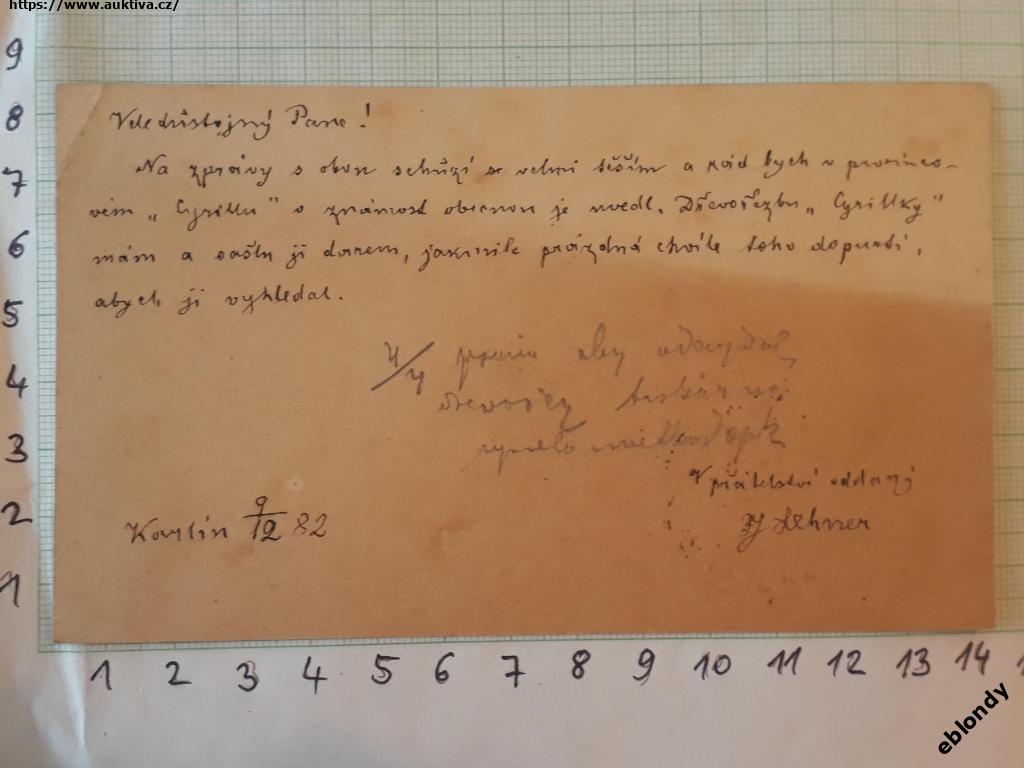 https://www.auktiva.cz/
Veledůstojný Pane!
Na zprávy s obou schůzí se velmi těším a rád bych v prosinco-
vém „Cyrillu" v známost obecnou je uvedl. Dřevořezbu „Cyrillky"
mám a zašlu ji darem, jakmile prázdná chvíle toho dopustí,
abych ji vyhledal.
4/4 aby
V přátelství oddaný
Karlín 9/12 82
FJ Lehner
9
8
7
6
5
4
3
2
1
1 2 3 4 5 6 7 8 9 10 11 12 13 14
eblondy